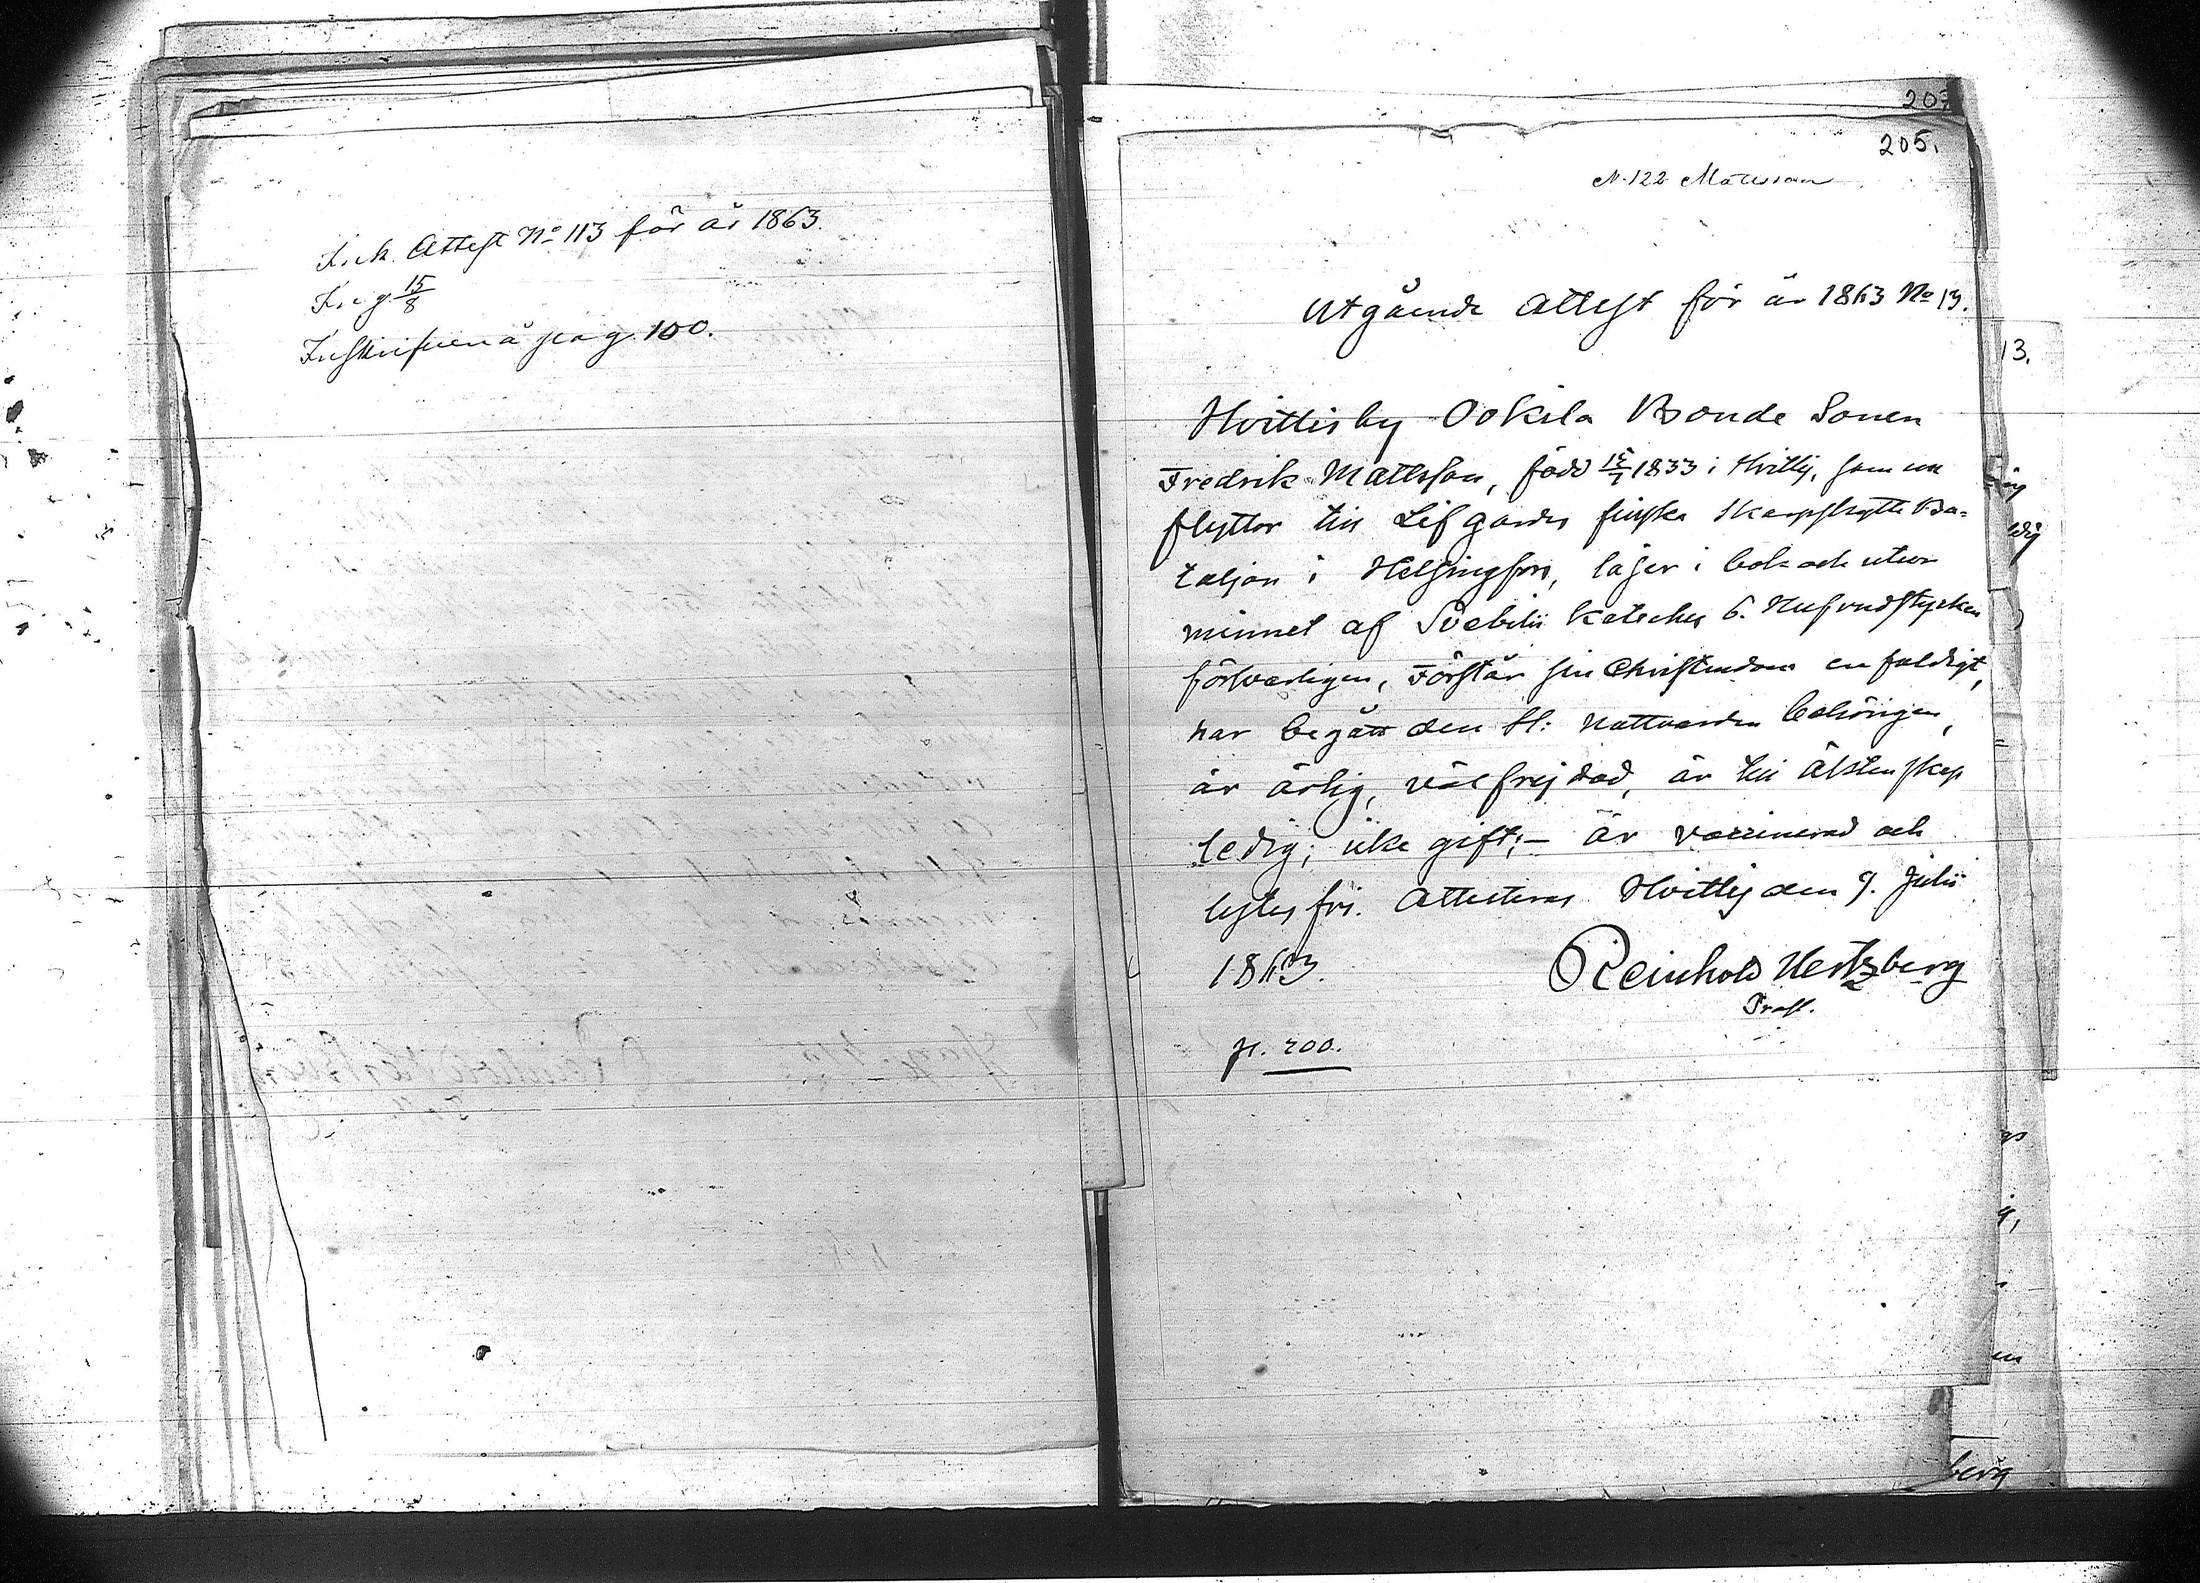 Ink. Attest No 113 för år 1863.
Ing. 15/8
Inskrifven å pag. 100.
207
205.
N. 122 Mattsson
Utgående Attest för år 1863 No 13.
13.
Hvittisby Ookila Bonde Sonen
Fredrik Mattsson, född 15/7 1833 i Hvittis, som nu
flyttar till Lifgardes finska Skarpskytte Ba-
taljon i Helsingfors, läser i bok och utur
minnet af Svebilii Kateches 6. Hufvudstycken
försvarligen, Förstår sin Christendom enfaldigt,
har begått den H: Nattvarden behörigen,
är ärlig, välfrejdad, är till Äktenskap
ledig; icke gift;— är vaccinerad och
lytes fri. Attesteras Hvittis den 9. Julii
1863.
Reinhold Hertzberg
Prost.
p. 200.
berg